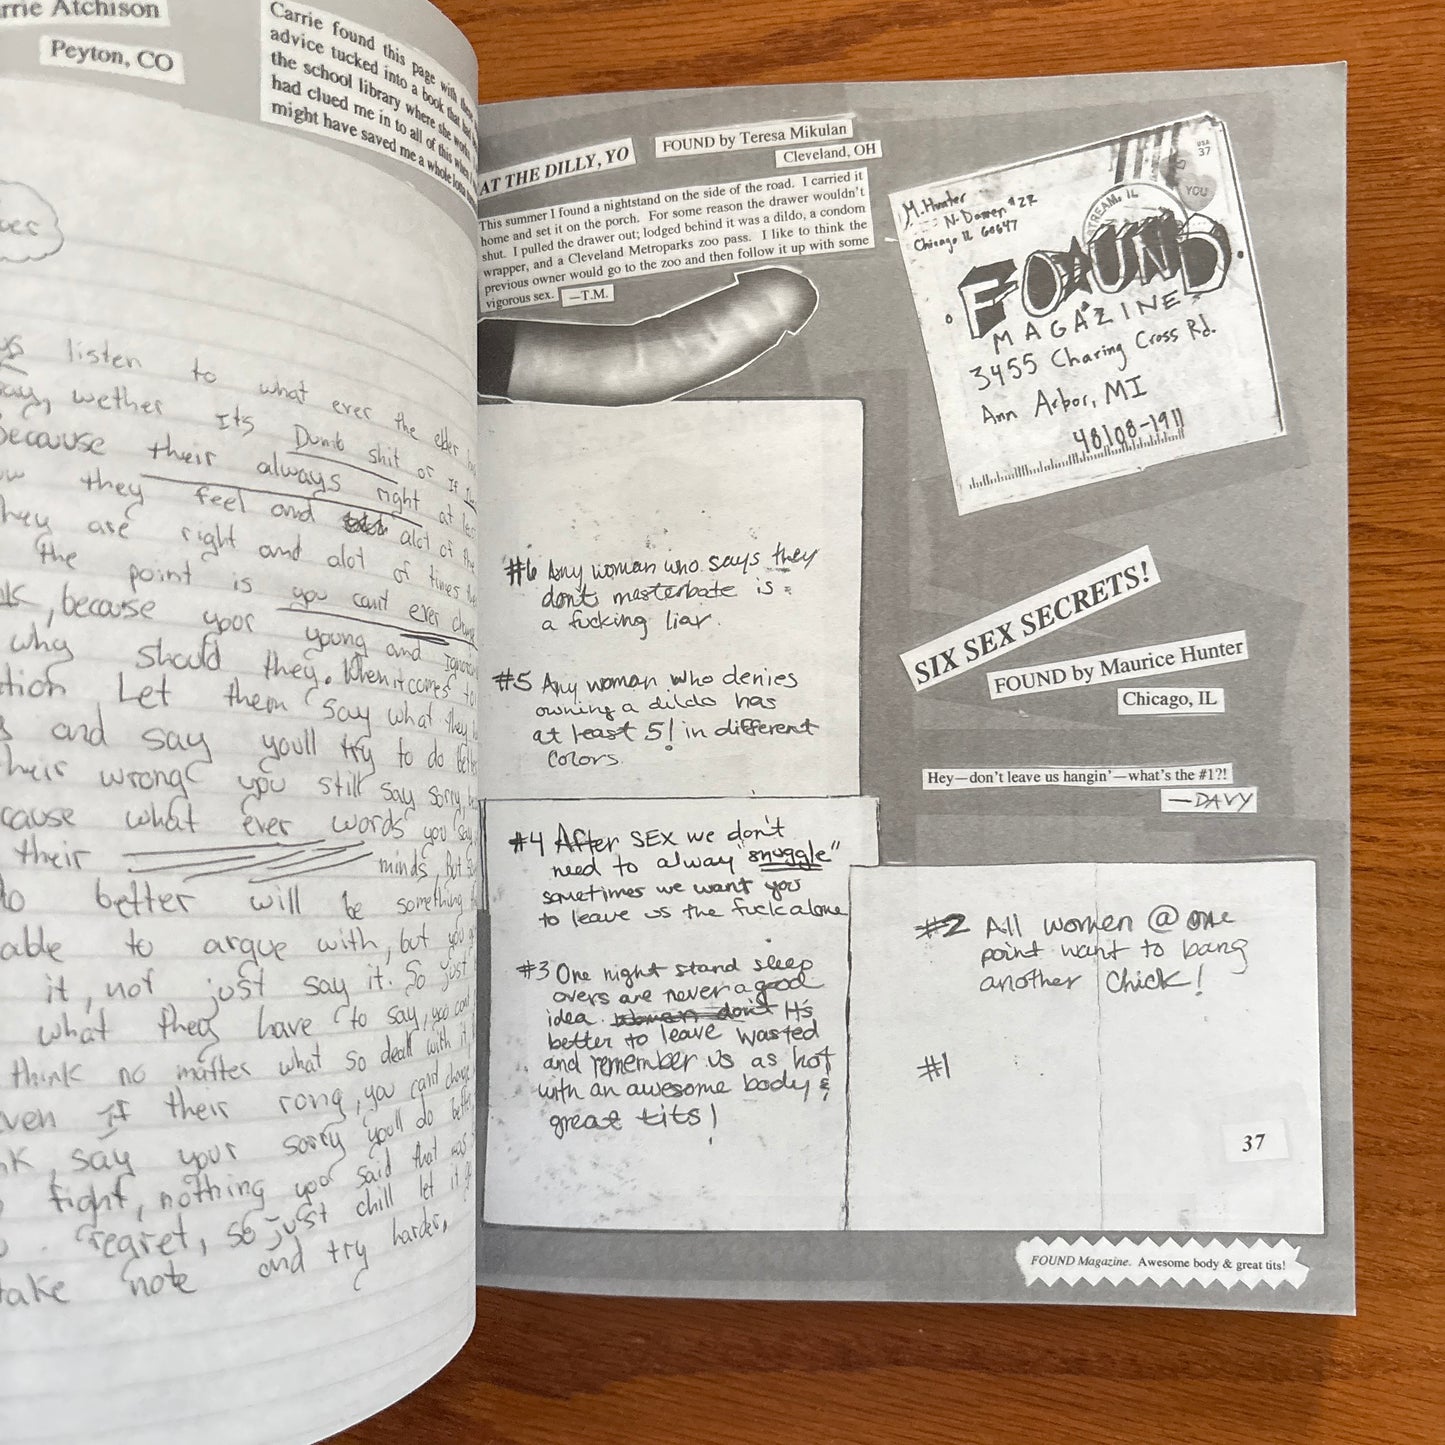 rrie Atchison
Peyton, CO
Carrie found this page with
advice tucked into a book that
the school library where she works
had clued me in to all of this when
might have saved me a whole lotta
listen to what ever the elder
wether Its Dumb shit or If
because their always right at
they feel and alot of the
they are right and alot of times
the point is you cant ever
because yoor young and
why should they. When it comes to
Let them say what they
and say youll try to do better
their wrong you still say sorry,
what ever words you say
their minds, But
do better will be something
able to argue with, but you
it, not just say it. So just
what they have to say, you
think no matter what so deall with it
even If their rong, you cant change
say your sorry youll do better
fight, nothing yoor said that was
regret, so just chill let it
take note and try harder.
AT THE DILLY, YO
FOUND by Teresa Mikulan
Cleveland, OH
This summer I found a nightstand on the side of the road. I carried it
home and set it on the porch. For some reason the drawer wouldn't
shut. I pulled the drawer out; lodged behind it was a dildo, a condom
wrapper, and a Cleveland Metroparks zoo pass. I like to think the
previous owner would go to the zoo and then follow it up with some
vigorous sex. —T.M.
#6 Any woman who says they
don't masterbate is
a fucking liar.
#5 Any woman who denies
owning a dildo has
at least 5! in different
colors
#4 After SEX we don't
need to alway "snuggle"
sometimes we want you
to leave us the fuck alone
#3 One night stand sleep
overs are never a good
idea. Women don't It's
better to leave wasted
and remember us as hot
with an awesome body &
great tits!
M. Hunter
N. Damen #2R
Chicago IL 60647
USA
37
YOU
STREAM, IL
FOUND
MAGAZINE
3455 Charing Cross Rd.
Ann Arbor, MI
48108-1911
SIX SEX SECRETS!
FOUND by Maurice Hunter
Chicago, IL
Hey—don't leave us hangin'—what's the #1?!
—DAVY
#2 All women @ one
point want to bang
another chick!
#1
37
FOUND Magazine. Awesome body & great tits!